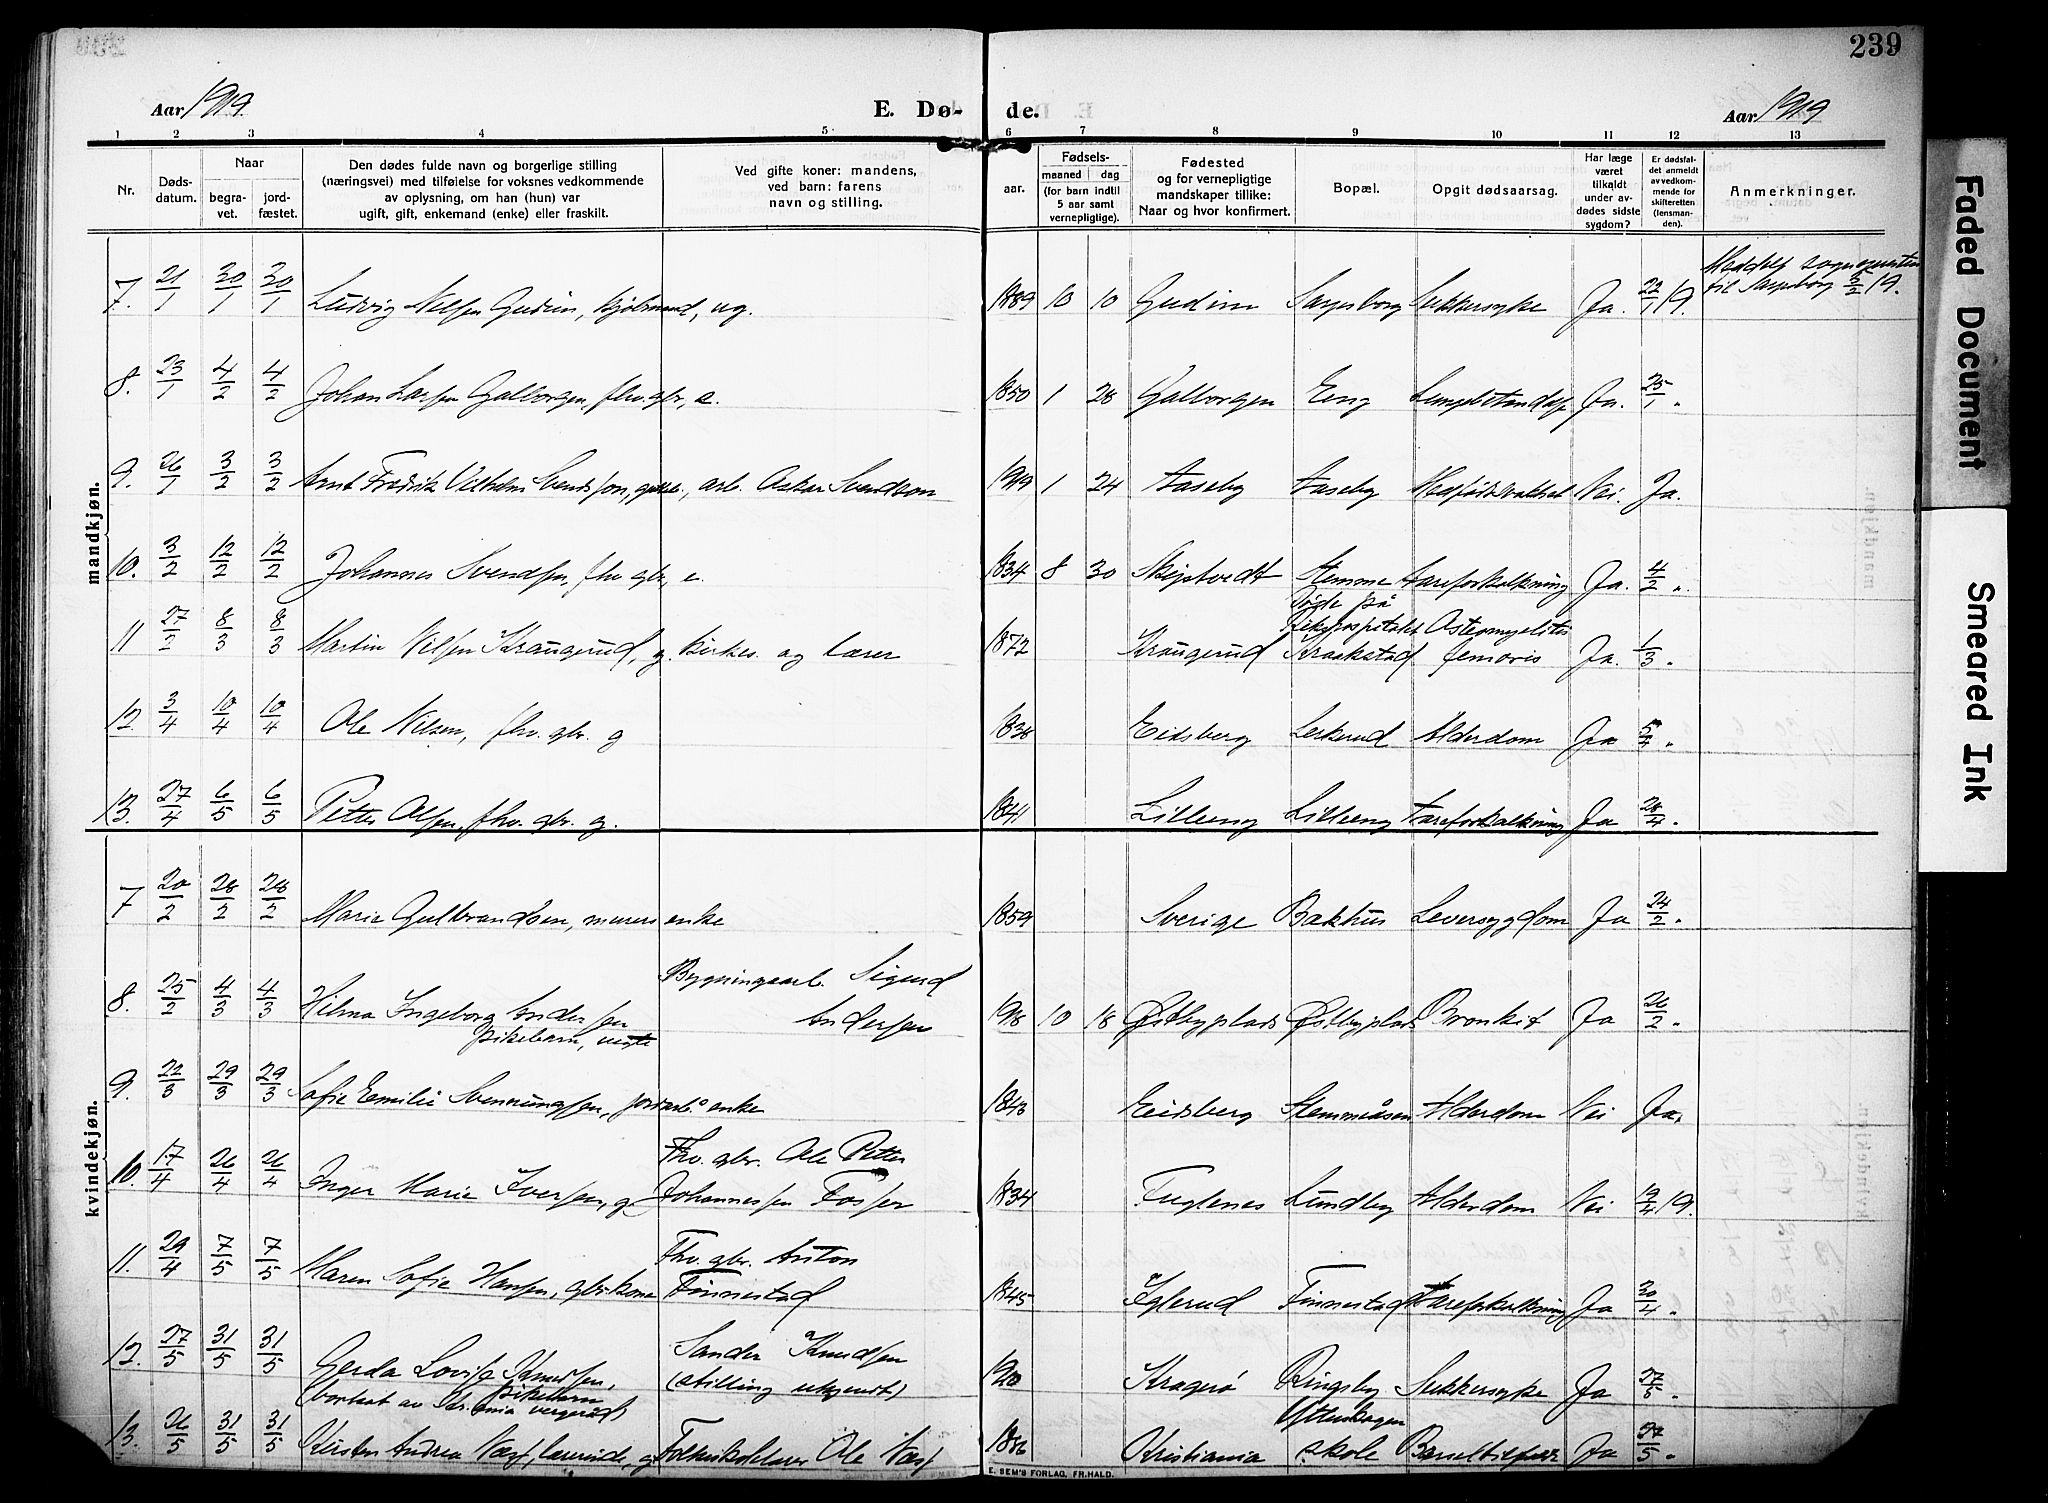 239
Aar 1919.
E. Dø- de.
Aar 1919
1 2 3 4 5 6 7 8 9 10 11 12 13
Nr.
Døds-
datum.
Naar
begra-
vet.
jord-
fæstet.
Den dødes fulde navn og borgerlige stilling
(næringsvei) med tilføielse for voksnes vedkommende
av oplysning, om han (hun) var
ugift, gift, enkemand (enke) eller fraskilt.
Ved gifte koner: mandens,
ved barn: farens
navn og stilling.
aar.
Fødsels-
maaned dag
(for barn indtil
5 aar samt
vernepligtige).
Fødested
og for vernepligtige
mandskaper tillike:
Naar og hvor konfirmert.
Bopæl.
Opgit dødsaarsag.
Har læge
været
tilkaldt
under av-
dødes sidste
sygdom?
Er dødsfal-
det anmeldt
av vedkom-
mende for
skifteretten
(lensman-
den).
Anmerkninger.
mandkjøn.
7. 21/1 30/1 30/1 Ludvig Nilsen Gudim, ug. 1889 10 10 Gudim Sarpsborg Sukkersyke Ja. 22/1 19.
til Sarpsborg 3/2 19.
8. 23/1 4/2 4/2 Johan Larsen Galborgen, fhv. gbr., e. 1850 1 28 Galborgen Eng Ja. 25/1 "
9. 26/1 3/2 3/2 Arnt Fredrik Vilhelm Svendsen, arb. Oskar Svendsen 1919 1 24 Aaseby Aaseby Nei. Ja.
10. 3/2 12/2 12/2 Johannes Svendsen, fhv. gbr., e. 1834 8 30 Skjstvedt Stemme Aareforkalkning Ja. 4/2 "
11 27/2 8/3 8/3 Martin Nilsen Kraugerud, g. kirkes. og lærer 1872 Kraugerud Døde på
Rikshospitalet
Kraakstad Osteomyelitis
femoris Ja. 1/3 "
12. 3/4 10/4 10/4 Ole Nilsen, fhv. gbr. g 1838 Eidsberg Lerkerud Alderdom Ja 5/4 "
13. 27/4 6/5 6/5 Petter Olsen, fhv. gbr. g. 1841 Lilleeng Lilleeng Aareforkalkning Ja 28/4 "
kvindekjøn.
7 20/2 28/2 28/2 Marie Gulbrandsen, murers enke 1859 Sverige Bakhus Leversygdom Ja 24/2 "
8. 25/2 4/3 4/3 Hilma Ingeborg Andersen
pikebarn, uegte
Bygningsarb. Sigurd
Andersen 1918 10 18 Østbyplads Østbyplads Bronkit Ja 26/2 "
9. 22/3 29/3 29/3 Sofie Emilie Svenningsen, jordarb. enke 1843 Eidsberg Stemmeåsen Alderdom Nei Ja.
10. 17/4 26/4 26/4 Inger Marie Iversen, g
Fhv. gbr. Ole Petter
Johannessen Fosser 1834 Fuglenes Lundby Alderdom Nei 19/4 19.
11. 29/4 7/5 7/5 Maren Sofie Hansen, gbr.kone
Fhv. gbr. Anton
Finnestad 1845 Iglerud Finnestad Aareforkalkning Ja 30/4 "
12. 27/5 31/5 31/5 Gerda Lovise Knudsen,
pikebarn
(bortsat av Kr.ania vergeråd)
Sander Knudsen
(stilling ukjendt) 1920 Kragerø Ringsby Sukkersyke Ja 27/5 "
13. 26/5 31/5 31/5 Kirsten Andrea Næss, lærerinde, g Folkeskolelærer Ole Næss 1886 Kristiania
skole Ja 27/5 "
E. SEM'S FORLAG, FR.HALD.
Faded Document
Smeared Ink